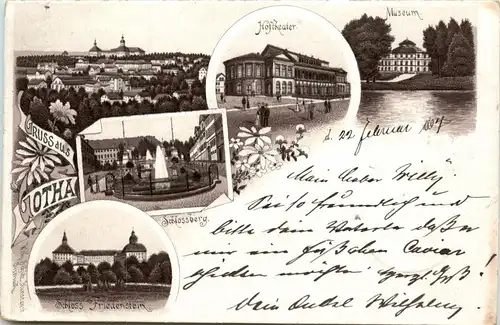 Hoftheater
Museum
Gruss aus
GOTHA
Schlossberg.
Schloss Friedenstein.
d. 22 Februar 1897
Mein lieber Willy!
Sei so freundlich und
bitte dein Vater daß er
mir ein Fäßchen Caviar
schicken möchte
Dein Onkel Wilhelm